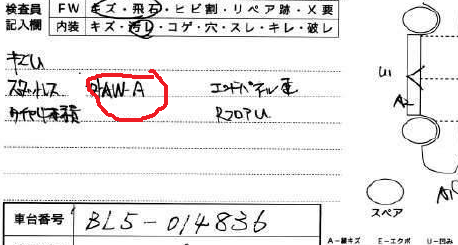 検査員 FW キズ・飛石・ヒビ割・リペア跡・X要
記入欄 内装 キズ・汚レ・コゲ・穴・スレ・キレ・破レ
キズU
スタッドレス AW-A エンドパネル
RフロアU
U1
A2
スペア
車台番号 BL5-014836
A-線キズ E-エクボ U-凹み